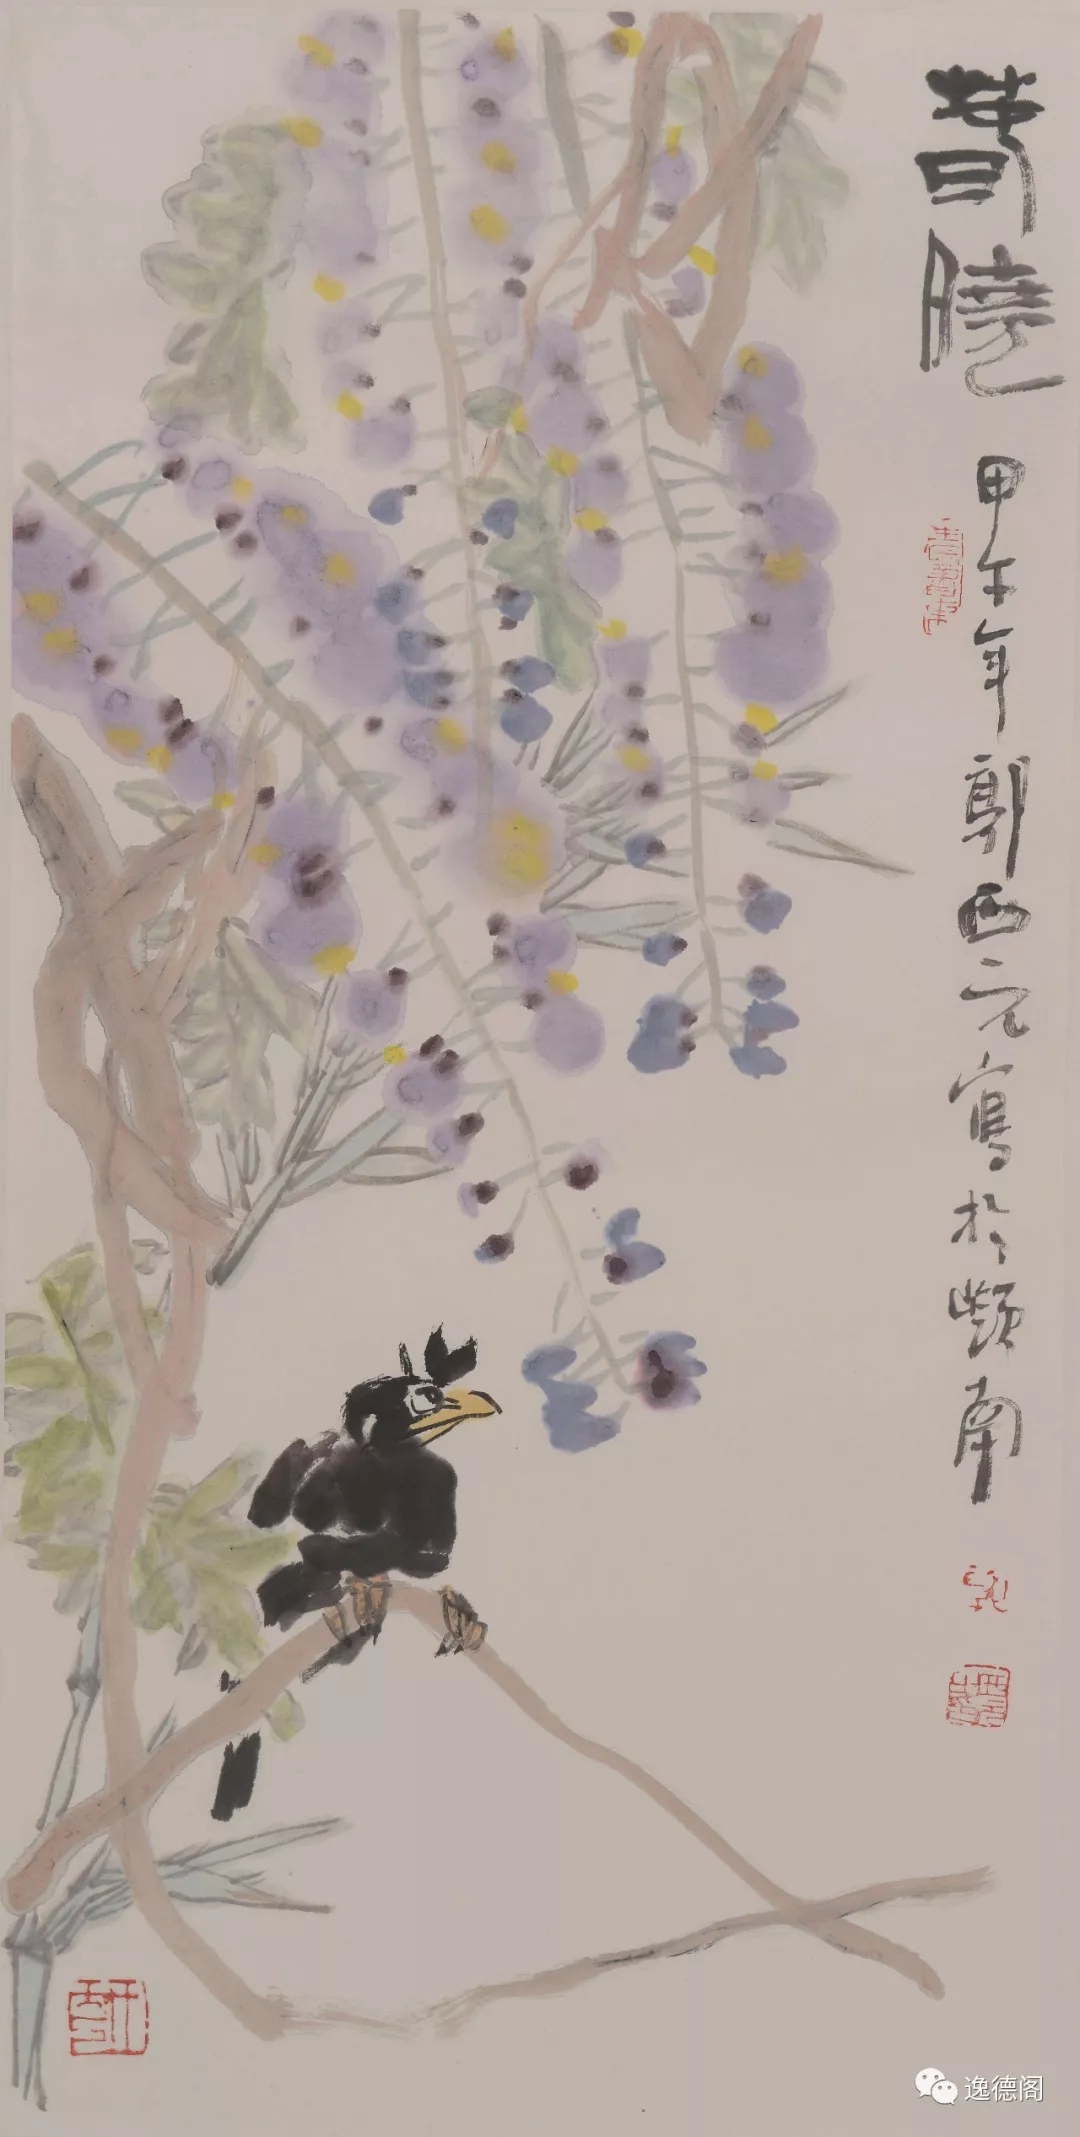 春曉
甲午年郭西元寫於嶺南
逸德阁